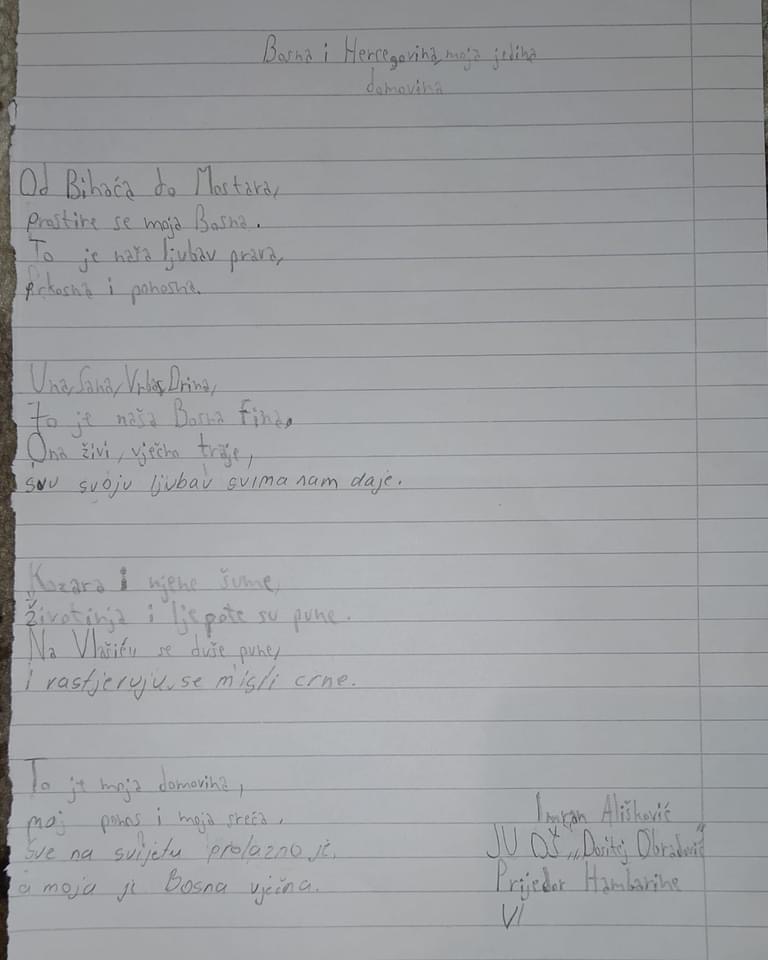 Bosna i Hercegovina, moja jedina
domovina
Od Bihaća do Mostara,
prostire se moja Bosna.
To je naša ljubav prava,
prkosna i ponosna.
Una, Sana, Vrbas, Drina,
to je naša Bosna fina.
Ona živi, vječno traje,
svu svoju ljubav svima nam daje.
Kozara i njene šume,
životinja i ljepote su pune.
Na Vlašiću se duše pune,
i rastjeruju se misli crne.
To je moja domovina,
moj ponos i moja sreća.
Sve na svijetu prolazno je,
a moja je Bosna vječna.
Imran Ališković
JU OŠ „Dositej Obradović"
Prijedor Hambarine
VI